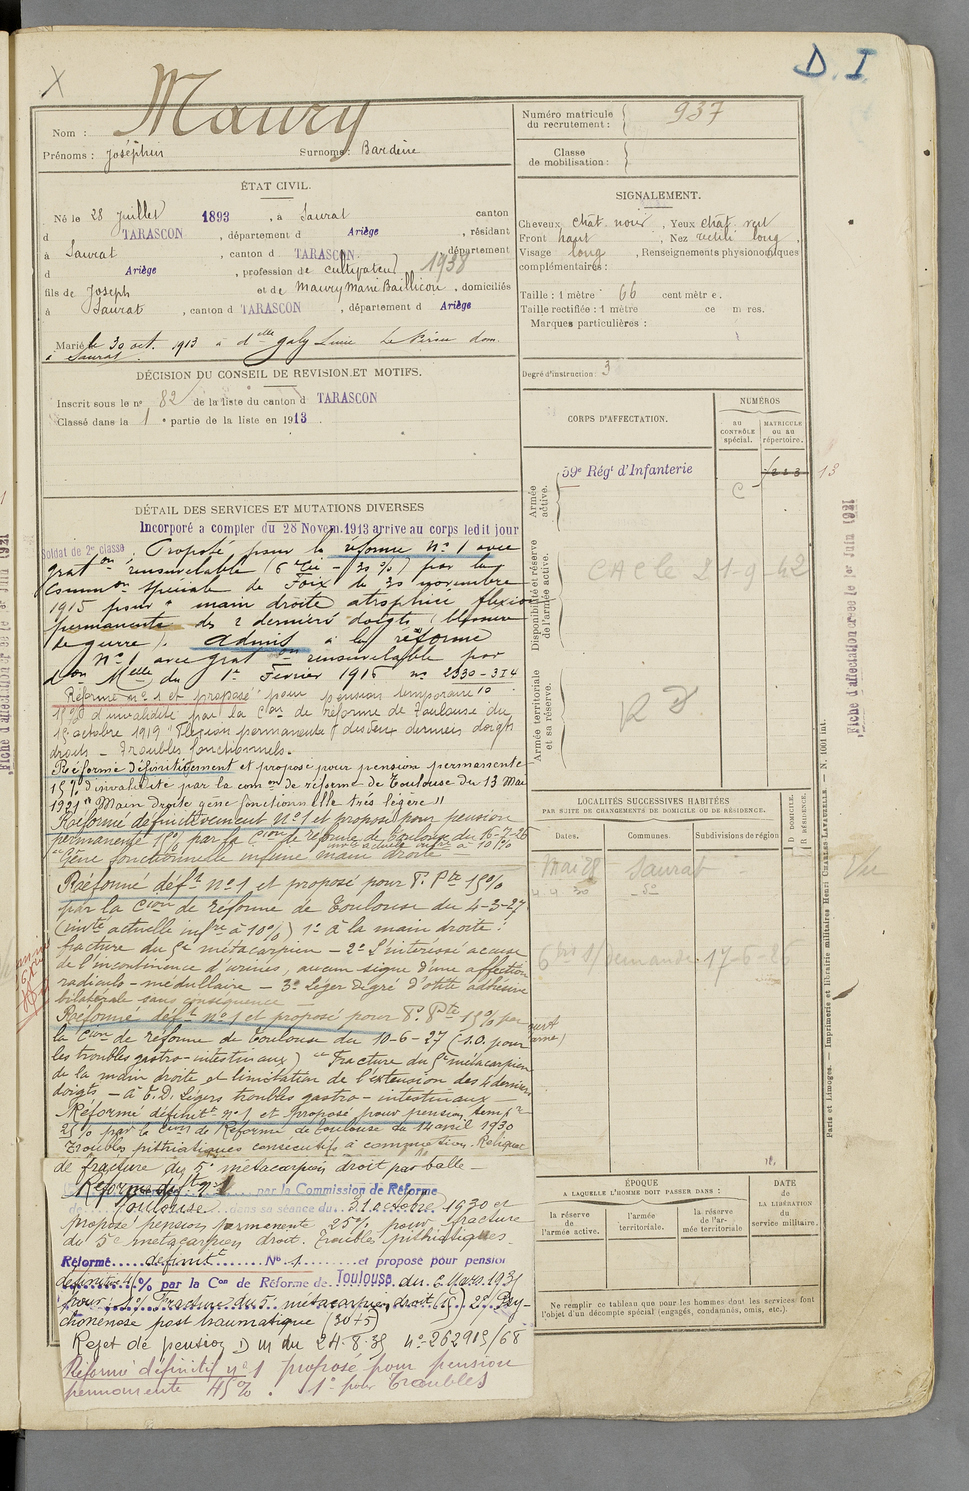 D. I.
X
Nom : Maury
Prénoms : Joséphin Surnoms : Bardeine
Numéro matricule du recrutement : 937
Classe de mobilisation :
ÉTAT CIVIL.
Né le 28 Juillet 1893, à Saurat canton
d TARASCON, département d Ariège, résidant
à Saurat, canton d TARASCON. département
d Ariège, profession de cultivateur 1938
fils de Joseph et de Maury Marie Baillicou, domiciliés
à Saurat, canton d TARASCON, département d Ariège
Marié le 30 oct. 1913 à delle Galy dom.
à Saurat.
SIGNALEMENT.
Cheveux chat. noir, Yeux chat. vert
Front haut, Nez long,
Visage long, Renseignements physionomiques
complémentaires :
Taille : 1 mètre 66 centimètre.
Taille rectifiée : 1 mètre ce m res.
Marques particulières :
Degré d'instruction : 3
DÉCISION DU CONSEIL DE REVISION ET MOTIFS.
Inscrit sous le n° 82 de la liste du canton d TARASCON
Classé dans la 1 e partie de la liste en 1913.
CORPS D'AFFECTATION.
NUMÉROS
AU CONTRÔLE spécial.
MATRICULE ou au répertoire.
Armée active.
59e Régt d'Infanterie
C
13
Disponibilité et réserve de l'armée active.
CAC le 21-9-42
Armée territoriale et sa réserve.
DÉTAIL DES SERVICES ET MUTATIONS DIVERSES
Incorporé a compter du 28 Novem. 1913 arrive au corps ledit jour
Soldat de 2e classe. Proposé pour la réforme N° 1 avec
graton renouvelable (6e Cie - 30%) par la
Common Spéciale de Foix le 30 novembre
1915 pour " main droite atrophiée flexion
permanente des 2 derniers doigts (blessure
de guerre). Admis à la réforme
N° 1 avec graton renouvelable par
don Melle du 1er Février 1916 n° 2330-3I4
Réformé n° 1 et proposé pour pension temporaire 10
15% d'invalidité par la Cion de réforme de Toulouse du
15 octobre 1919 "Flexion permanente des deux derniers doigts
droits - Troubles fonctionnels.
Réformé définitivement et proposé pour pension permanente
15% d'invalidité par la comon de réforme de Toulouse du 13 Mai
1921 "Main droite gêne fonctionnelle très légère"
Réformé définitivement N° 1 et proposé pour pension
permanente 15% par la Cion de réforme de Toulouse du 16-7-26
invté actuelle infre à 10%
"Gêne fonctionnelle infime main droite"
Réformé déft N° 1 et proposé pour P. Pte 15%
par la Cion de réforme de Toulouse du 4-3-27
(invté actuelle infre à 10%) 1° à la main droite :
fracture du 5e métacarpien - 2° L'intéressé accuse
de l'incontinence d'urines, aucun signe d'une affection
radiculo-médullaire - 3° Léger degré d'otite adhésive
bilatérale sans conséquence -
Réformé déft n° 1 et proposé pour P. Pte 15% par
la Cion de réforme de Toulouse du 10-6-27 (S.O. pour
les troubles gastro-intestinaux) "Fracture du 5e métacarpien
de la main droite et limitation de l'extension des 4 derniers
doigts - à T.D. Légers troubles gastro-intestinaux -
Réformé définitt n° 1 et proposé pour pension tempre
25% par la Cion de Réforme de Toulouse du 14 avril 1930
Troubles pithiatiques consécutifs à commotion. Reliquat
de fracture du 5e métacarpien droit par balle -
Réformé déft n° 1 par la Commission de Réforme
de Toulouse dans sa séance du 31 octobre 1930 et
proposé pension permanente 25% pour fracture
du 5e métacarpien droit. Troubles pithiatiques.
Réformé définitt N° 1 et proposé pour pension
définitive % par la Con de Réforme de Toulouse du 2 Mars 1935
pour 1° Fracture du 5e métacarpien droit (15) 2° Psy-
chonévrose post traumatique (30+5)
Rejet de pension D M du 24-8-35 N° 262915/68
Réformé définitif n° 1 proposé pour pension
permanente 45%. 1° pour Troubles
LOCALITÉS SUCCESSIVES HABITÉES
PAR SUITE DE CHANGEMENTS DE DOMICILE OU DE RÉSIDENCE.
Dates. Communes. Subdivisions de région
D DOMICILE.
R RÉSIDENCE.
Mai 28 Saurat
4.4.30 do
Vu
17-6-26
ÉPOQUE
A LAQUELLE L'HOMME DOIT PASSER DANS :
la réserve de l'armée active.
l'armée territoriale.
la réserve de l'armée territoriale
DATE de LA LIBÉRATION du service militaire.
Ne remplir ce tableau que pour les hommes dont les services font
l'objet d'un décompte spécial (engagés, condamnés, omis, etc.).
Paris et Limoges. — Imprimerie et librairie militaires Henri CHARLES-LAVAUZELLE. — N. 1001 int.
Fiche d'affectation créée le 1er Juin 1921
Fiche d'affectation créée le 1er Juin 1921